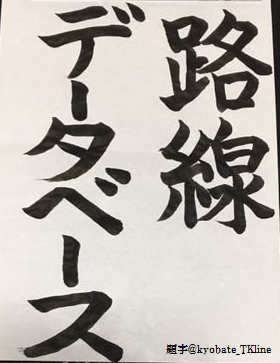 路線
データベース
題字@kyobate_TKline